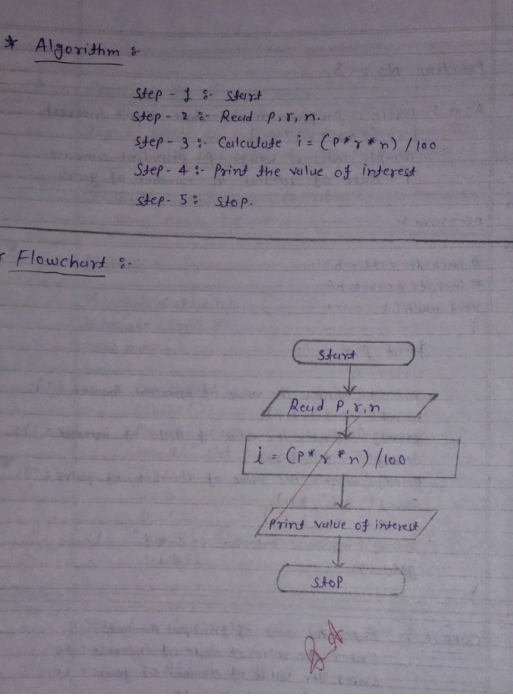 * Algorithm :-
Step - 1 :- Start
Step - 2 :- Read P, r, n.
Step - 3 :- Calculate i = (P * r * n) / 100.
Step - 4 :- Print the value of interest
Step - 5 : Stop.
Flowchart :-
Start
Read P, r, n
i = (P * r * n) / 100
Print value of interest
Stop